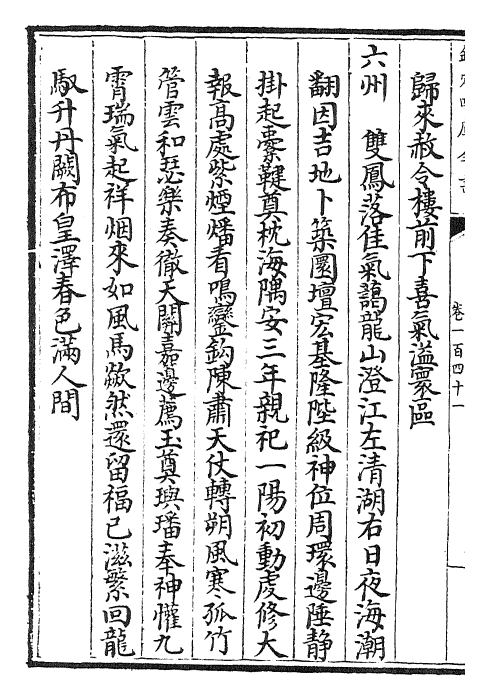 欽定四庫全書
卷一百四十一
歸來赦令樓前下喜氣溢寰區
六州　雙鳳落佳氣藹龍山澄江左清湖右日夜海潮
翻因吉地卜築圜壇宏基隆陛級神位周環邊陲靜
掛起櫜鞬奠枕海隅安三年親祀一陽初動虔修大
報高處紫煙燔看鳴鑾鈎陳肅天仗轉朔風寒孤竹
管雲和瑟樂奏徹天關嘉邊薦玉奠璵璠奉神懽九
霄瑞氣起祥烟來如風馬歘然還留福已滋繁回龍
馭升丹闕布皇澤春色滿人間